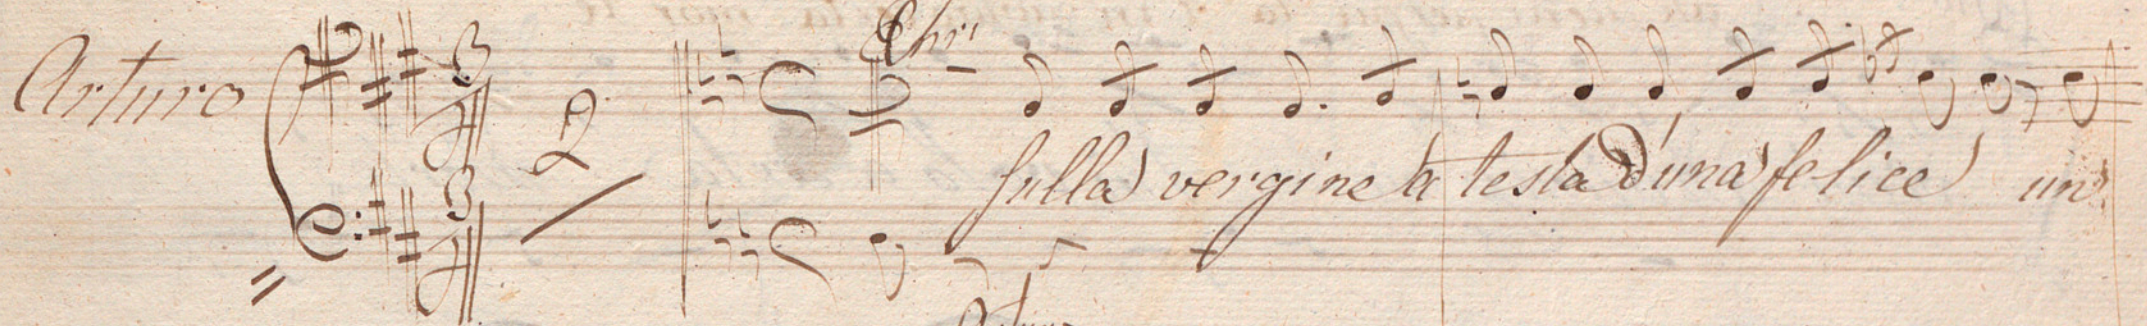 Arturo
2
sulla vergine a testa d'una felice un